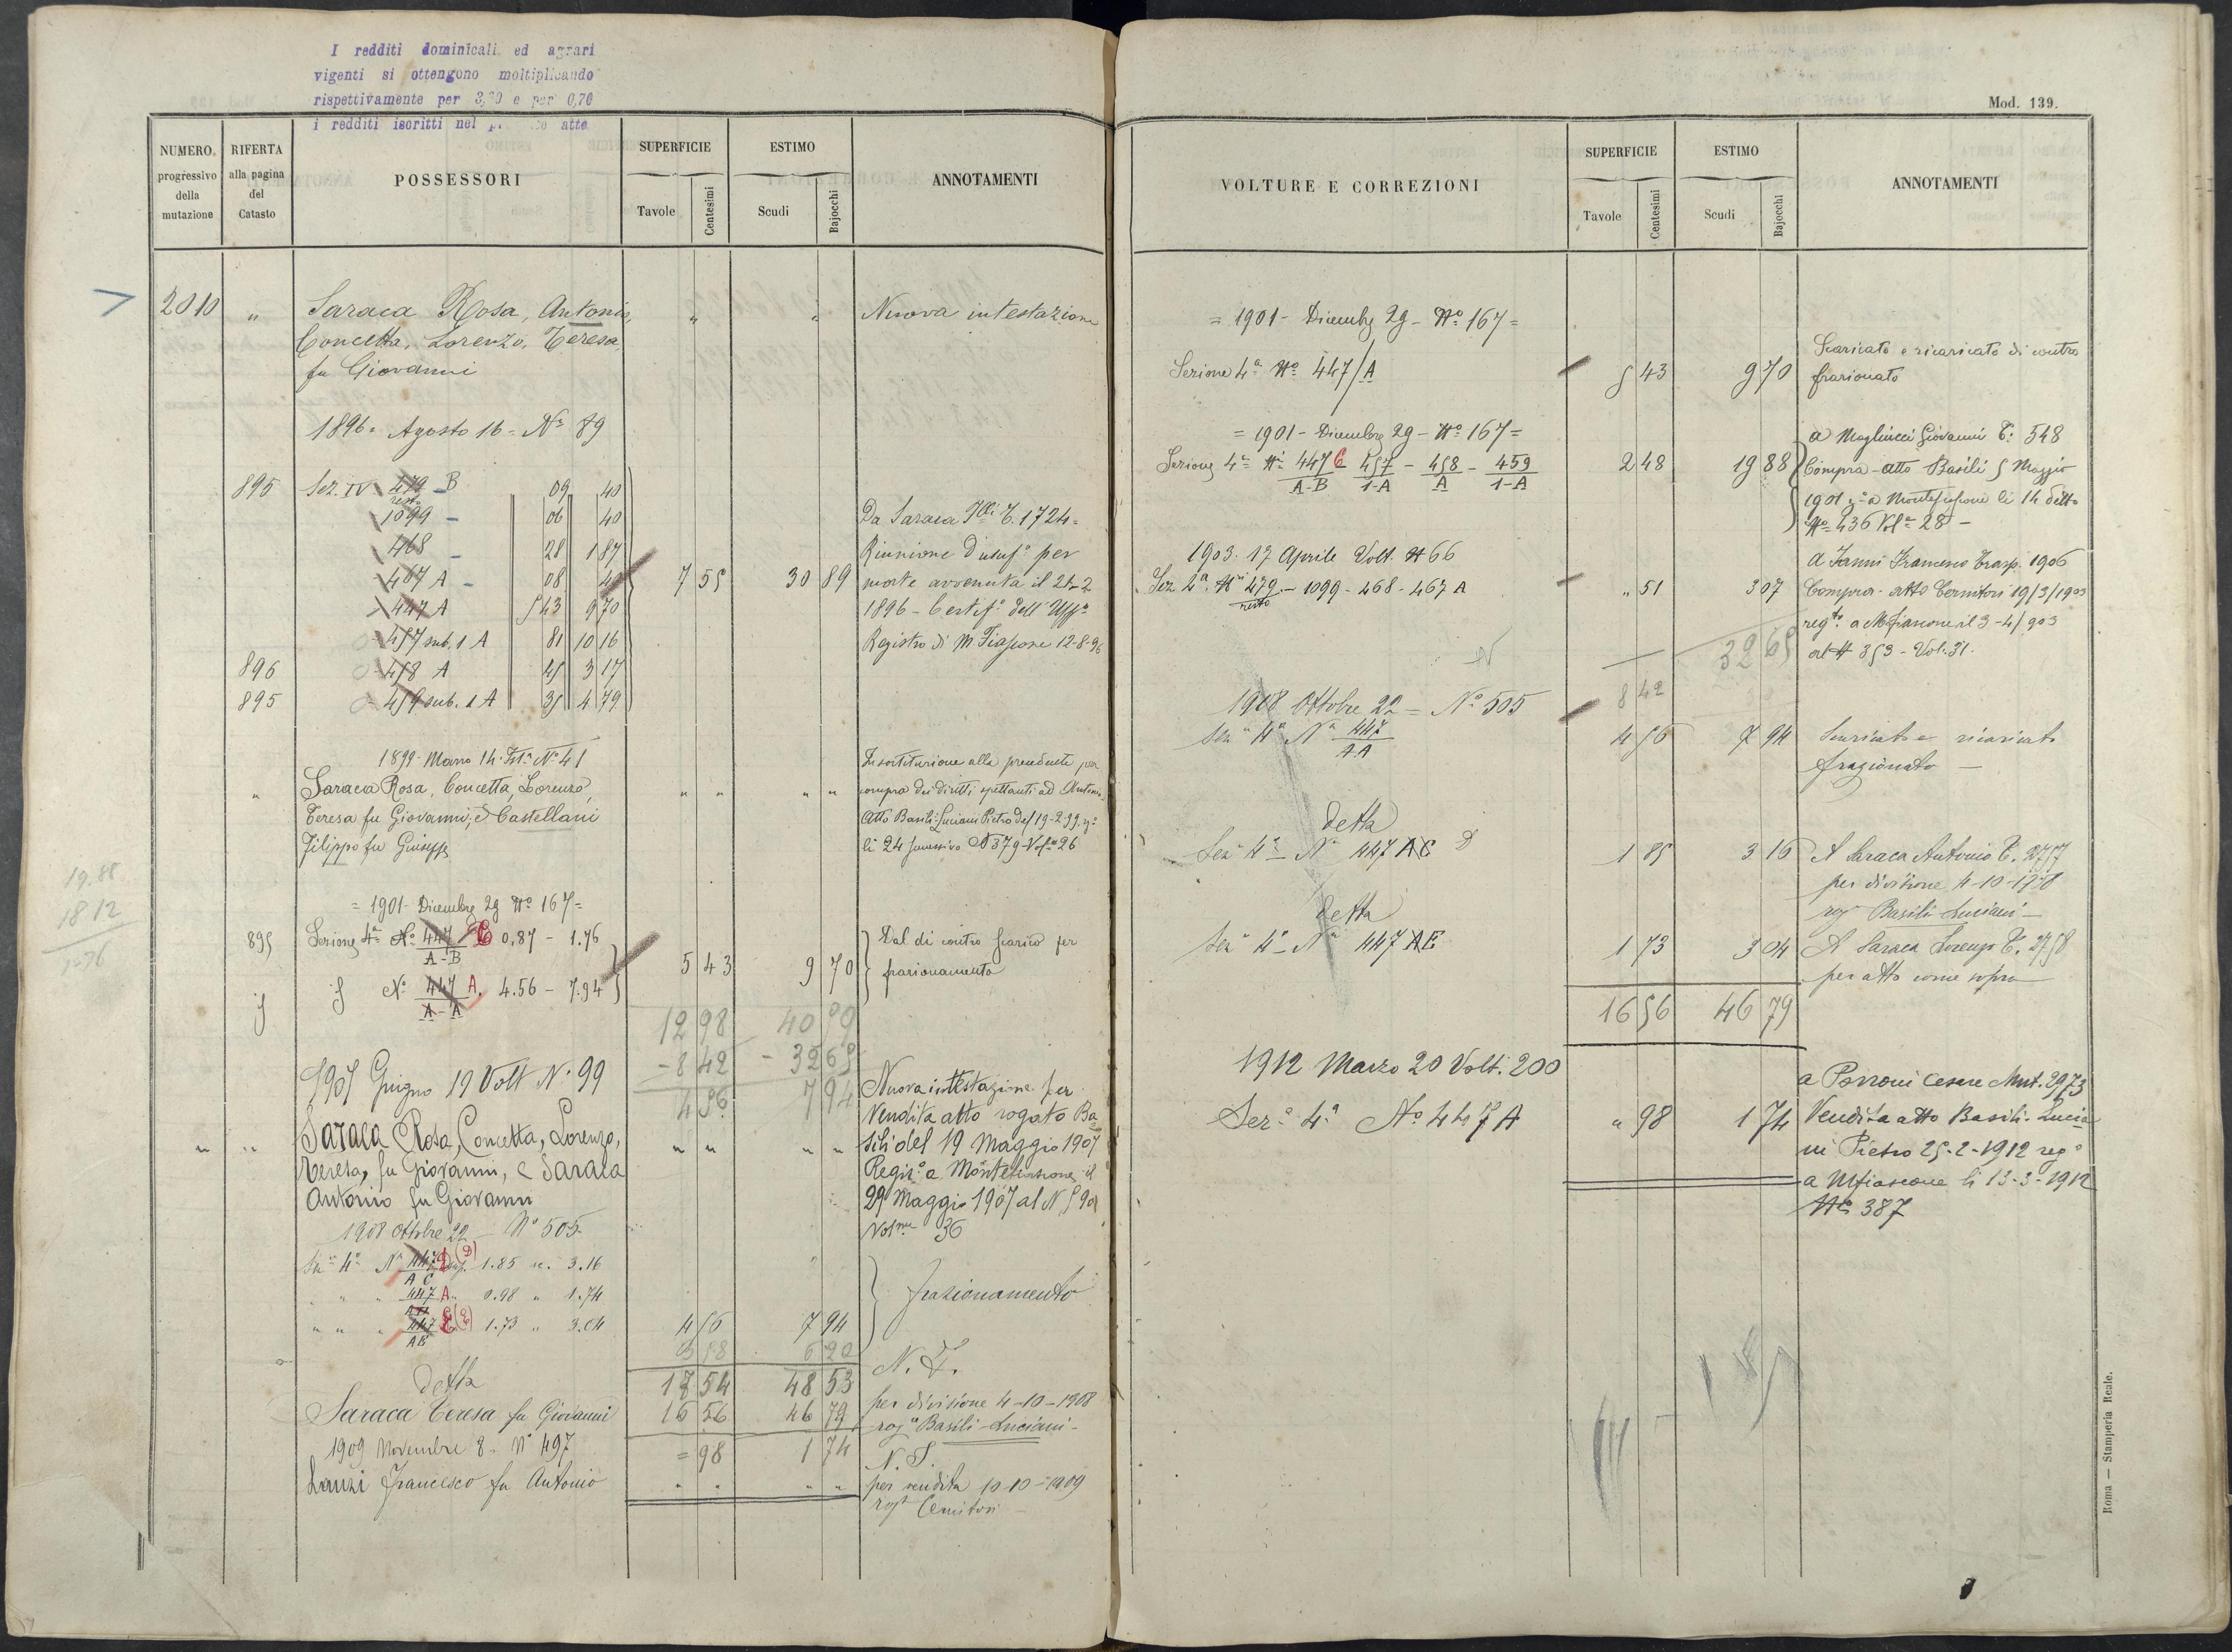 I redditi dominicali ed agrari
vigenti si ottengono moltiplicando
rispettivamente per 3,20 e per 0,70
i redditi iscritti nel atto
NUMERO progressivo della mutazione
RIFERTA alla pagina del Catasto
POSSESSORI
SUPERFICIE
Tavole Centesimi
ESTIMO
Scudi Bajocchi
ANNOTAMENTI
2010 " Saraca Rosa, Antonio, " " Nuova intestazione
Concetta, Lorenzo, Teresa
fu Giovanni
1896 = Agosto 16 = N° 89
895 Sez. IV 479 resto B 09 40
1099 - 06 40
468 - 28 187
467 A - 08 40
447 A 5 43 9 70
457 sub. 1 A 81 10 16
896 458 A 45 3 17
895 459 sub. 1 A 35 4 79
7 55 30 89
Da Saraca T. 1724 =
Riunione d'usuf° per
morte avvenuta il 24-2
1896 - Certif° dell' Uff°
Registro di M Fiascone 12-8-96
1899 - Marzo 14 - N° 41
" Saraca Rosa, Concetta, Lorenzo, " " " "
Teresa fu Giovanni, e Castellani
Filippo fu Giuseppe
In sostituzione alla precedente per
compra dei diritti spettanti ad Antonio
Atto Basili-Luciani Pietro del 19-2-99
li 24 successivo N 379 Vol 26
19.88
18 12
1-76
= 1901 - Dicembre 29 N° 167 =
895 Sezione 4ª N° 447/A-B C 0.87 - 1.76
N° 447/A-A A. 4.56 - 7.94
5 43 9 70
Dal di contro scarico per
frazionamento
12 98 40 59
- 8 42 - 32 65
4 56 7 94
1907 Giugno 19 Volt N° 99
" " Saraca Rosa, Concetta, Lorenzo, " " " "
Teresa, fu Giovanni, e Saraca
Antonio fu Giovanni
Nuova intestazione per
Vendita atto rogato Ba
sili del 19 Maggio 1907
Regis° a Montefiascone il
29 Maggio 1907 al N 590
Vol 36
1908 Ottobre 22 - N° 505
Sez 4ª N° 447/AC D (D) 1.85 " 3.16
" " " 447 A " 0.98 " 1.74
" " " 447/AE E (E) 1.73 " 3.04
4 56 7 94
frazionamento
3 58 6 20
detta
17 54 48 53
16 56 46 79
= 98 1 74
Saraca Teresa fu Giovanni
per divisione 4-10-1908
rog° Basili-Luciani -
1909 Novembre 8 - N° 497
Lanzi Francesco fu Antonio " " " "
per vendita 10-10-1909
rog°
Mod. 139.
VOLTURE E CORREZIONI
SUPERFICIE
Tavole Centesimi
ESTIMO
Scudi Bajocchi
ANNOTAMENTI
= 1901 - Dicembre 29 - N° 167 =
Sezione 4ª N° 447/A 5 43 9 70
Scaricato e ricaricato di contro
frazionato
= 1901 - Dicembre 29 - N° 167 =
Sezione 4ª N° 447 C/A-B 457/1-A - 458/A - 459/1-A 2 48 19 88
a Magliucci Giovanni T: 548
Compra - atto Basili 5 Maggio
1901 a Montefiascone li 14 detto
N° 436 Vol 28 -
1903. 17 Aprile Volt. N 66
Sez. 4ª N 479 resto - 1099 - 468 - 467 A " 51 3 07
A Francesco Trasp. 1906
Compra - atto Cernitori 19/3/1903
reg.to a Mfiascone il 3-4/903
al N 353 - Vol. 31.
8 42 32 65
1908 Ottobre 22 = N° 505
Sez 4ª N° 447/AA 4 56 7 94
Scaricato e ricaricato
frazionato -
detta
Sez 4ª N° 447 AC D 1 85 3 16
A Saraca Antonio T. 2757
per divisione 4-10-1908
rog° Basili Luciani -
detta
Sez 4ª N° 447 AE 1 73 3 04
A Saraca Lorenzo T. 2758
per atto come sopra
16 56 46 79
1912 Marzo 20 Volt. 200
Sez. 4ª N° 447 A " 98 1 74
a Porroni Cesare Mut. 2973
Vendita atto Basili-Lucia
ni Pietro 25-2-1912 reg°
a Mfiascone li 13-3-1912
N° 387
Roma — Stamperia Reale.